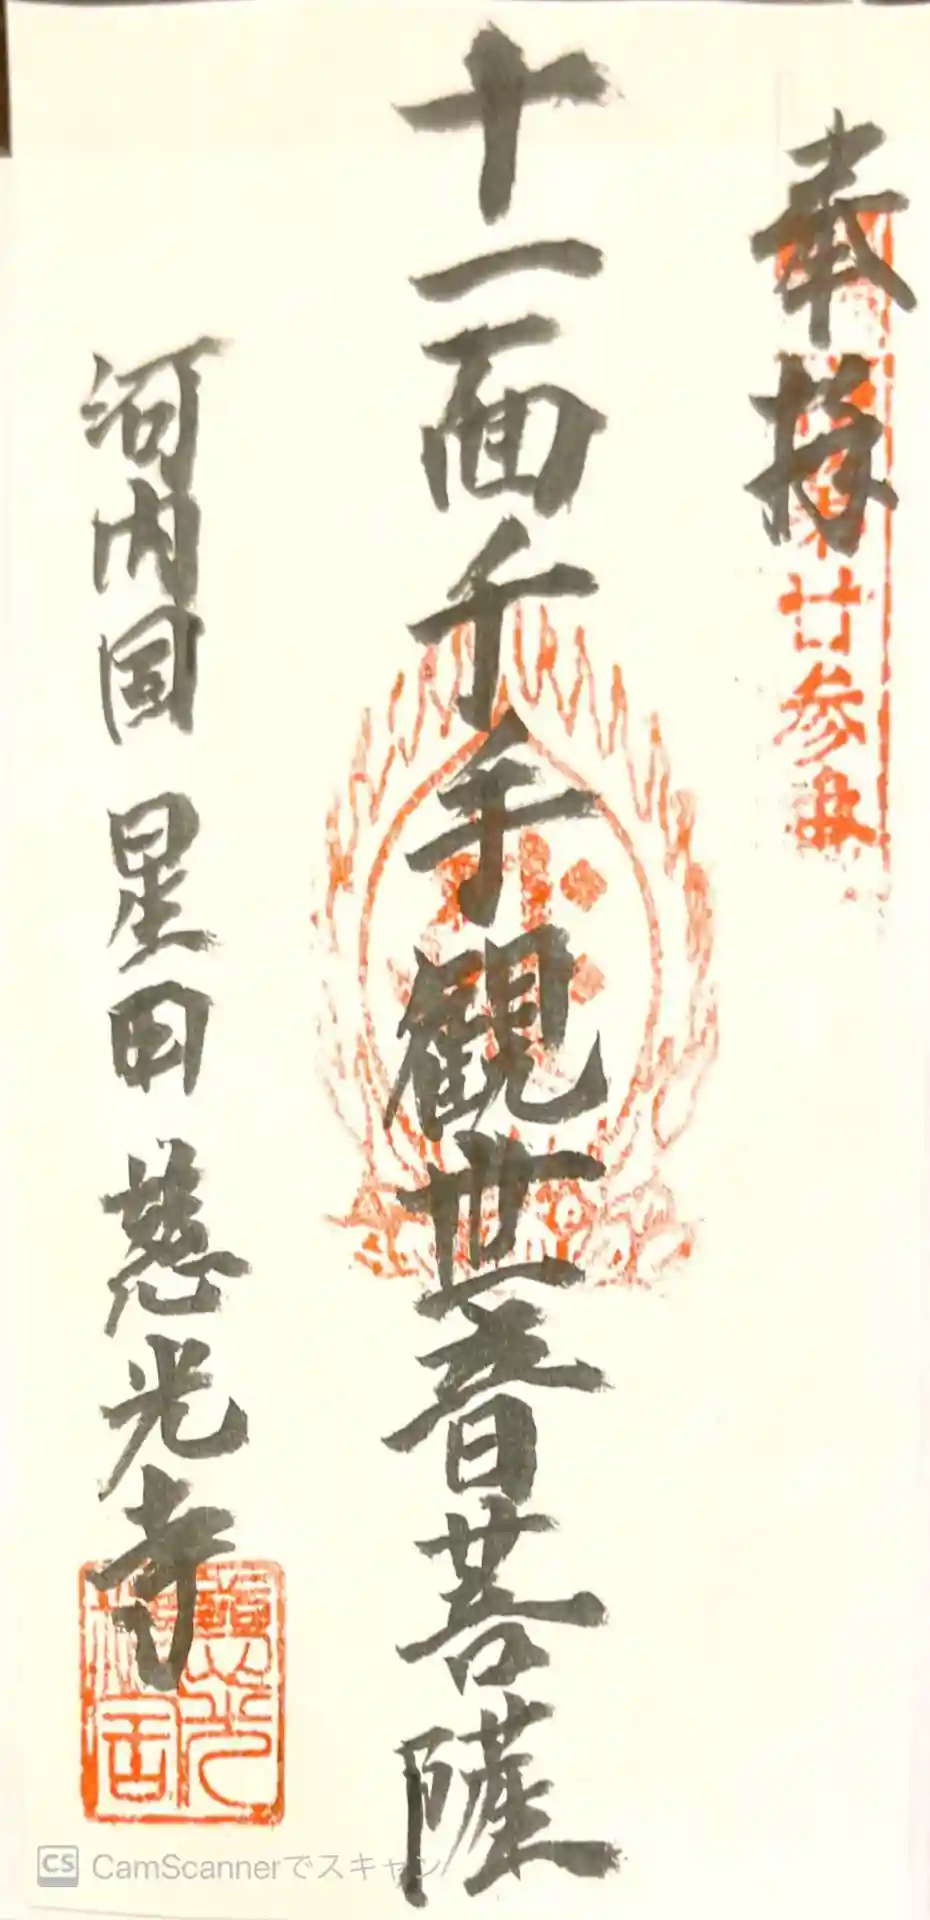 奉拝
廿参番
十一面千手観世音菩薩
河内国 星田 慈光寺
CS CamScannerでスキャン